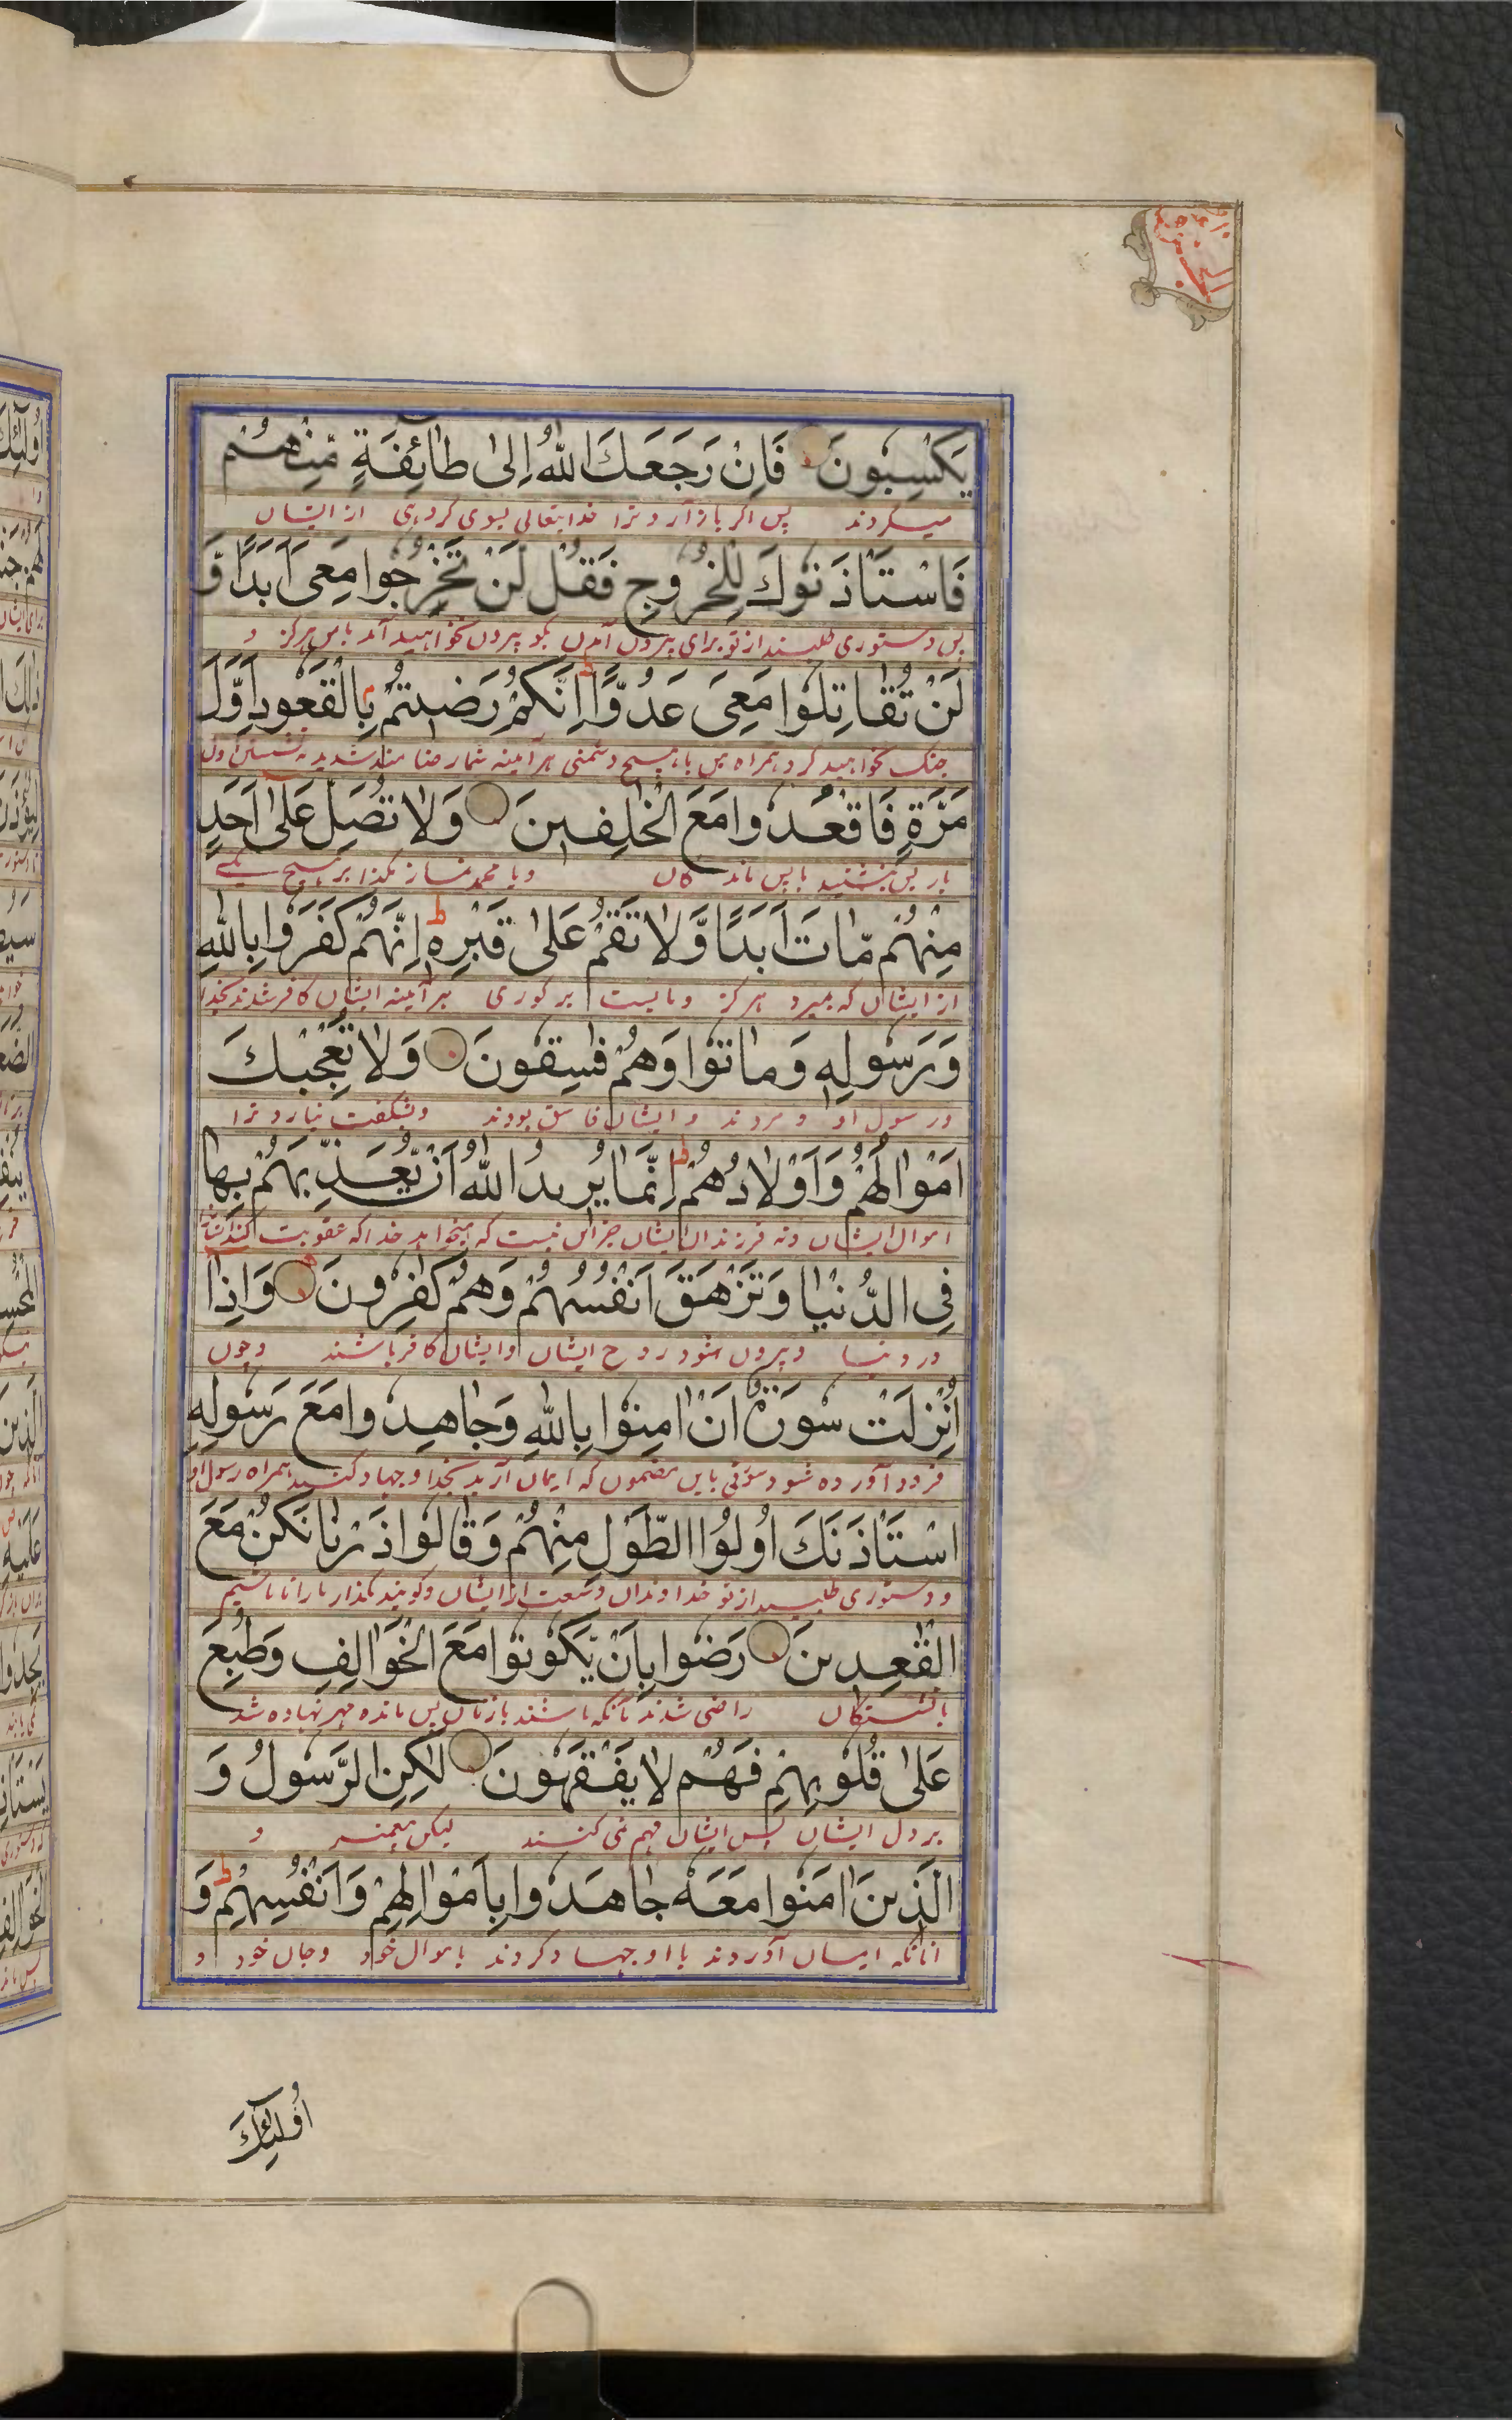 يَكْسِبُونَ فَاِنْ رَجَعَكَ اللّٰهُ اِلٰى طَآئِفَةٍ مِّنْهُمْ
میکردند پس اکر باز آرد ترا خدایتعالی بسوی کروهی از ایشان
فَاسْتَاْذَنُوْكَ لِلْخُرُوْجِ فَقُلْ لَنْ تَخْرُجُوْا مَعِیَ اَبَدًا وَّ
پس دستوری طلبند از تو برای بیرون آمدن بکو بیرون نخواهید آمد با من هرکز و
لَنْ تُقَاتِلُوْا مَعِیَ عَدُوًّا ط اِنَّكُمْ رَضِيْتُمْ بِالْقُعُوْدِ اَوَّلَ
جنک نخواهید کرد همراه من با هیچ دشمنی هرآیینه شما رضامند شدید به نشستن اول
مَرَّةٍ فَاقْعُدُوْا مَعَ الْخٰلِفِيْنَ وَلَا تُصَلِّ عَلٰٓى اَحَدٍ
بار پس بنشینید با پس ماندکان و یا محمد نماز مکذار بر هیچ یکی
مِنْهُمْ مَّاتَ اَبَدًا وَّلَا تَقُمْ عَلٰى قَبْرِهٖ ط اِنَّهُمْ كَفَرُوْا بِاللّٰهِ
از ایشان که بمیرد هرکز و مایست بر کوری هرآیینه ایشان کافر شدند بخدا
وَرَسُوْلِهٖ وَمَاتُوْا وَهُمْ فٰسِقُوْنَ وَلَا تُعْجِبْكَ
و رسول او و مردند و ایشان فاسق بودند و بشکفت نیارد ترا
اَمْوَالُهُمْ وَاَوْلَادُهُمْ ط اِنَّمَا يُرِيْدُ اللّٰهُ اَنْ يُّعَذِّبَهُمْ بِهَا
اموال ایشان و نه فرزندان ایشان جز این نیست که میخواهد خدا که عقوبت کند
فِی الدُّنْيَا وَتَزْهَقَ اَنْفُسُهُمْ وَهُمْ كٰفِرُوْنَ وَاِذَا
در دنیا و بیرون شود روح ایشان و ایشان کافر باشند و چون
اُنْزِلَتْ سُوْرَةٌ اَنْ اٰمِنُوْا بِاللّٰهِ وَجَاهِدُوْا مَعَ رَسُوْلِهِ
فرود آورده شود سورتی باین مضمون که ایمان آرید بخدا و جهاد کنید همراه رسول او
اسْتَاْذَنَكَ اُولُوا الطَّوْلِ مِنْهُمْ وَقَالُوْا ذَرْنَا نَكُنْ مَّعَ
و دستوری طلبید از تو خداوندان وسعت از ایشان و کویند بکذار ما را تا باشیم
الْقٰعِدِيْنَ رَضُوْا بِاَنْ يَّكُوْنُوْا مَعَ الْخَوَالِفِ وَطُبِعَ
با نشستکان راضی شدند بآنکه باشند با زنان پس مانده مهر نهاده شد
عَلٰى قُلُوْبِهِمْ فَهُمْ لَا يَفْقَهُوْنَ لٰكِنِ الرَّسُوْلُ وَ
بر دل ایشان پس ایشان فهم نمی کنند لیکن پیغمبر و
الَّذِيْنَ اٰمَنُوْا مَعَهٗ جَاهَدُوْا بِاَمْوَالِهِمْ وَاَنْفُسِهِمْ ط وَ
آنانکه ایمان آوردند با او جهاد کردند باموال خود و جان خود و
اُولٰٓئِكَ